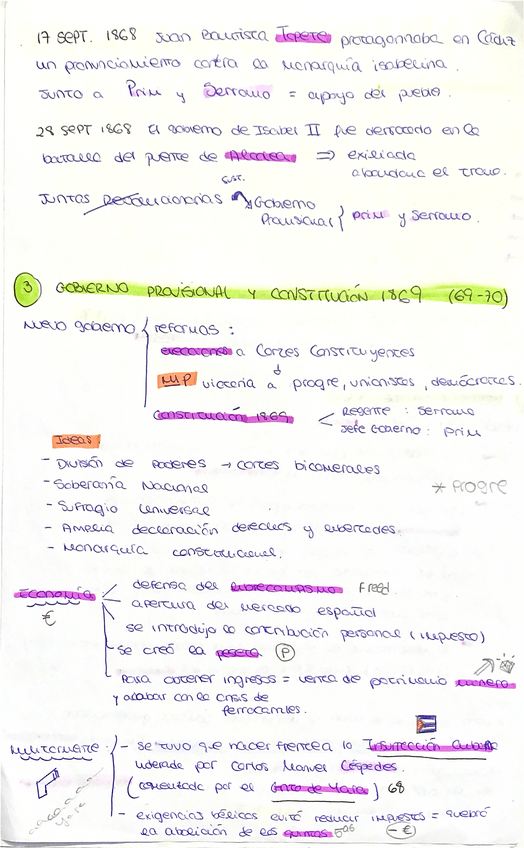 17 SEPT. 1868 Juan Bautista Topete protagonizaba en Cádiz
un pronunciamiento contra la monarquía isabelina.
Junto a Prim y Serrano = apoyo del pueblo.
28 SEPT 1868 El gobierno de Isabel II fue derrocado en la
batalla del puente de Alcolea ⇒ exiliada
abandona el trono.
sust.
Juntas Revolucionarias Gobierno
Provisional } Prim y Serrano.
3 GOBIERNO PROVISIONAL Y CONSTITUCIÓN 1869 (69-70)
Nuevo gobierno { reformas:
elecciones a Cortes Constituyentes
MP victoria a progre, unionistas, demócratas.
Constitución 1869 < Regente: Serrano
Jefe Gobierno: Prim
Ideas:
- División de poderes → cortes bicamerales
- Soberanía Nacional * PROGRE
- Sufragio Universal
- Amplia declaración derechos y libertades.
- Monarquía constitucional.
Economía < defensa del librecambismo
€ apertura del mercado español
se introdujo la contribución personal (impuesto)
se creó la peseta (P)
Para obtener ingresos = venta de patrimonio minero
y acabar con la crisis de
ferrocarriles.
Militarmente: - se tuvo que hacer frente a la Insurrección Cubana
liderada por Carlos Manuel Céspedes.
(comentada por el Grito de Yara) 68
Yara
- exigencias bélicas evitó reducir impuestos = quebró
la abolición de las quintas (-€)